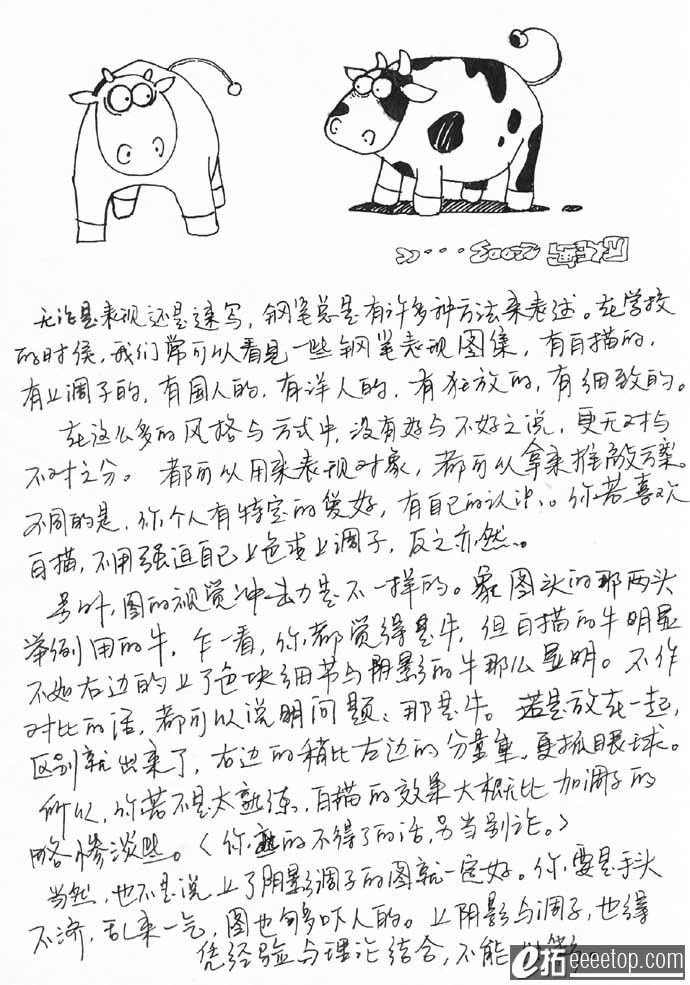 2003
无论是表现还是速写，钢笔总是有许多种方法来表述。在学校
的时候，我们常可以看见一些钢笔表现图集，有白描的，
有上调子的，有国人的，有洋人的，有狂放的，有细致的。
在这么多的风格与方式中，没有好与不好之说，更无对与
不对之分。都可以用来表现对象，都可以拿来推敲方案。
不同的是，你个人有特定的爱好，有自己的认识。你若喜欢
白描，不用强迫自己上色或上调子，反之亦然。
另外，图的视觉冲击力是不一样的。象图头的那两头
举例用的牛，乍一看，你都觉得是牛，但白描的牛明显
不如右边的上了色块细节与阴影的牛那么显明。不作
对比的话，都可以说明问题、那是牛。若是放在一起，
区别就出来了，右边的稍比左边的分量重，更抓眼球。
所以，你若不是太熟练，白描的效果大概比加调子的
略惨淡些。（你熟的不得了的话，另当别论。）
当然，也不是说上了阴影调子的图就一定好。你要是手头
不济，乱来一气，图也够吓人的。上阴影与调子，也得
凭经验与理论结合，不能
e拓 eeeetop.com